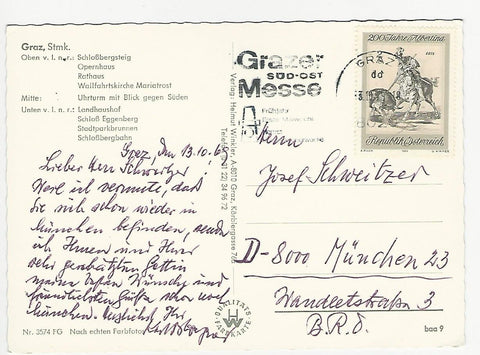 Graz, Stmk.
Oben v. l. n. r.: Schloßbergsteig
Opernhaus
Rathaus
Wallfahrtskirche Mariatrost
Mitte: Uhrturm mit Blick gegen Süden
Unten v. l. n. r.: Landhaushof
Schloß Eggenberg
Stadtparkbrunnen
Schloßbergbahn
Graz, Im 13.10.69
Lieber Herr Schweitzer!
Weil ich vermute, daß
Sie sich schon wieder in
München befinden, sende
ich Ihnen und Ihrer
sehr geschätzten Gattin
meine besten Wünsche und
freundlichsten Grüße nach
München. Herzlichst Ihr
Nr. 3574 FG Nach echten Farbfotos
Verlag: Helmut Winkler, A-8010 Graz, Körblergasse
Telefon 22) 34 96 72
Grazer
SÜD-OST
Messe
Frühjahr
GRAZ
200 Jahre Albertina
Republik Österreich
Herrn
Josef Schweitzer
D-8000 München 23
Wandletstraße 3
B.R.D.
QUALITÄTS
FARBKARTE
HW
baa 9